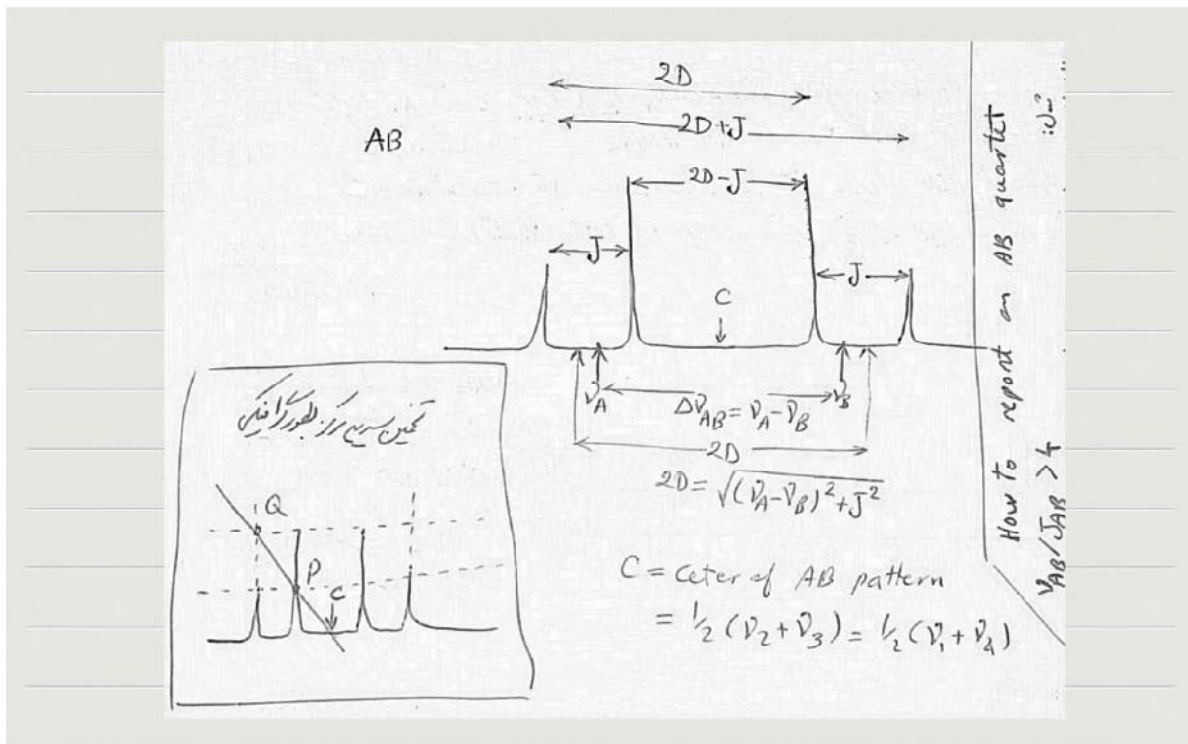 2D
2D+J
AB
2D-J
J
J
C
ν_A
Δν_AB = ν_A - ν_B
ν_B
2D
2D = √(ν_A-ν_B)² + J²
C = Ceter of AB pattern
= 1/2 (ν₂ + ν₃) = 1/2 (ν₁ + ν₄)
تخمین سریع مرکز بطور گرافیکی
Q
P
C
How to report an AB quartet
ν_AB/J_AB > 4